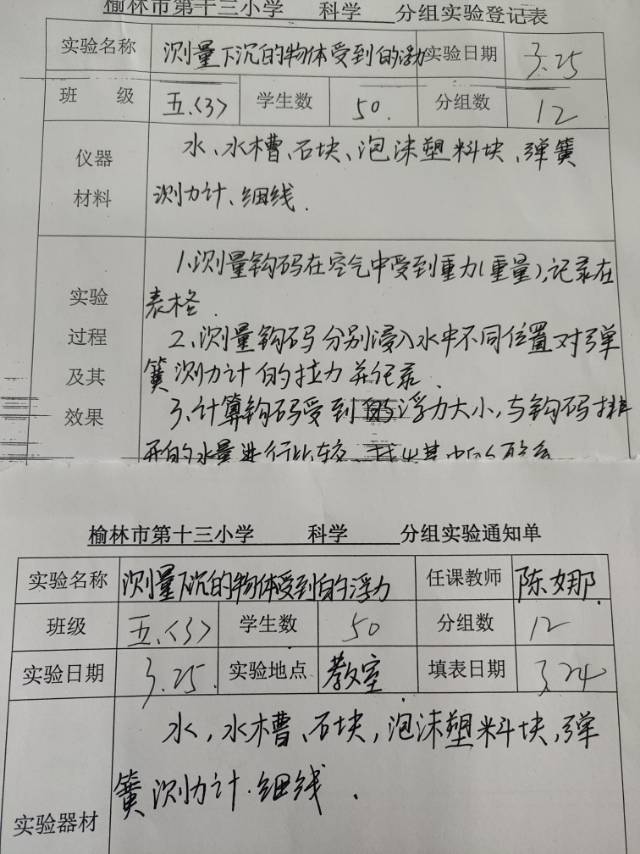 榆林市第十三小学 科学 分组实验登记表
实验名称 测量下沉的物体受到的浮力 实验日期 3.25
班 级 五.<3> 学生数 50. 分组数 12
仪器材料 水、水槽、石块、泡沫塑料块、弹簧
测力计、细线.
实验过程及其效果 1.测量钩码在空气中受到重力(重量),记录在
表格.
2.测量钩码分别浸入水中不同位置对弹
簧测力计的拉力并记录.
3.计算钩码受到的浮力大小,与钩码排
开的水量进行比较
榆林市第十三小学 科学 分组实验通知单
实验名称 测量下沉的物体受到的浮力 任课教师 陈娜.
班级 五.<3> 学生数 50 分组数 12
实验日期 3.25. 实验地点 教室 填表日期 3.24
实验器材 水,水槽、石块,泡沫塑料块,弹
簧测力计.细线.